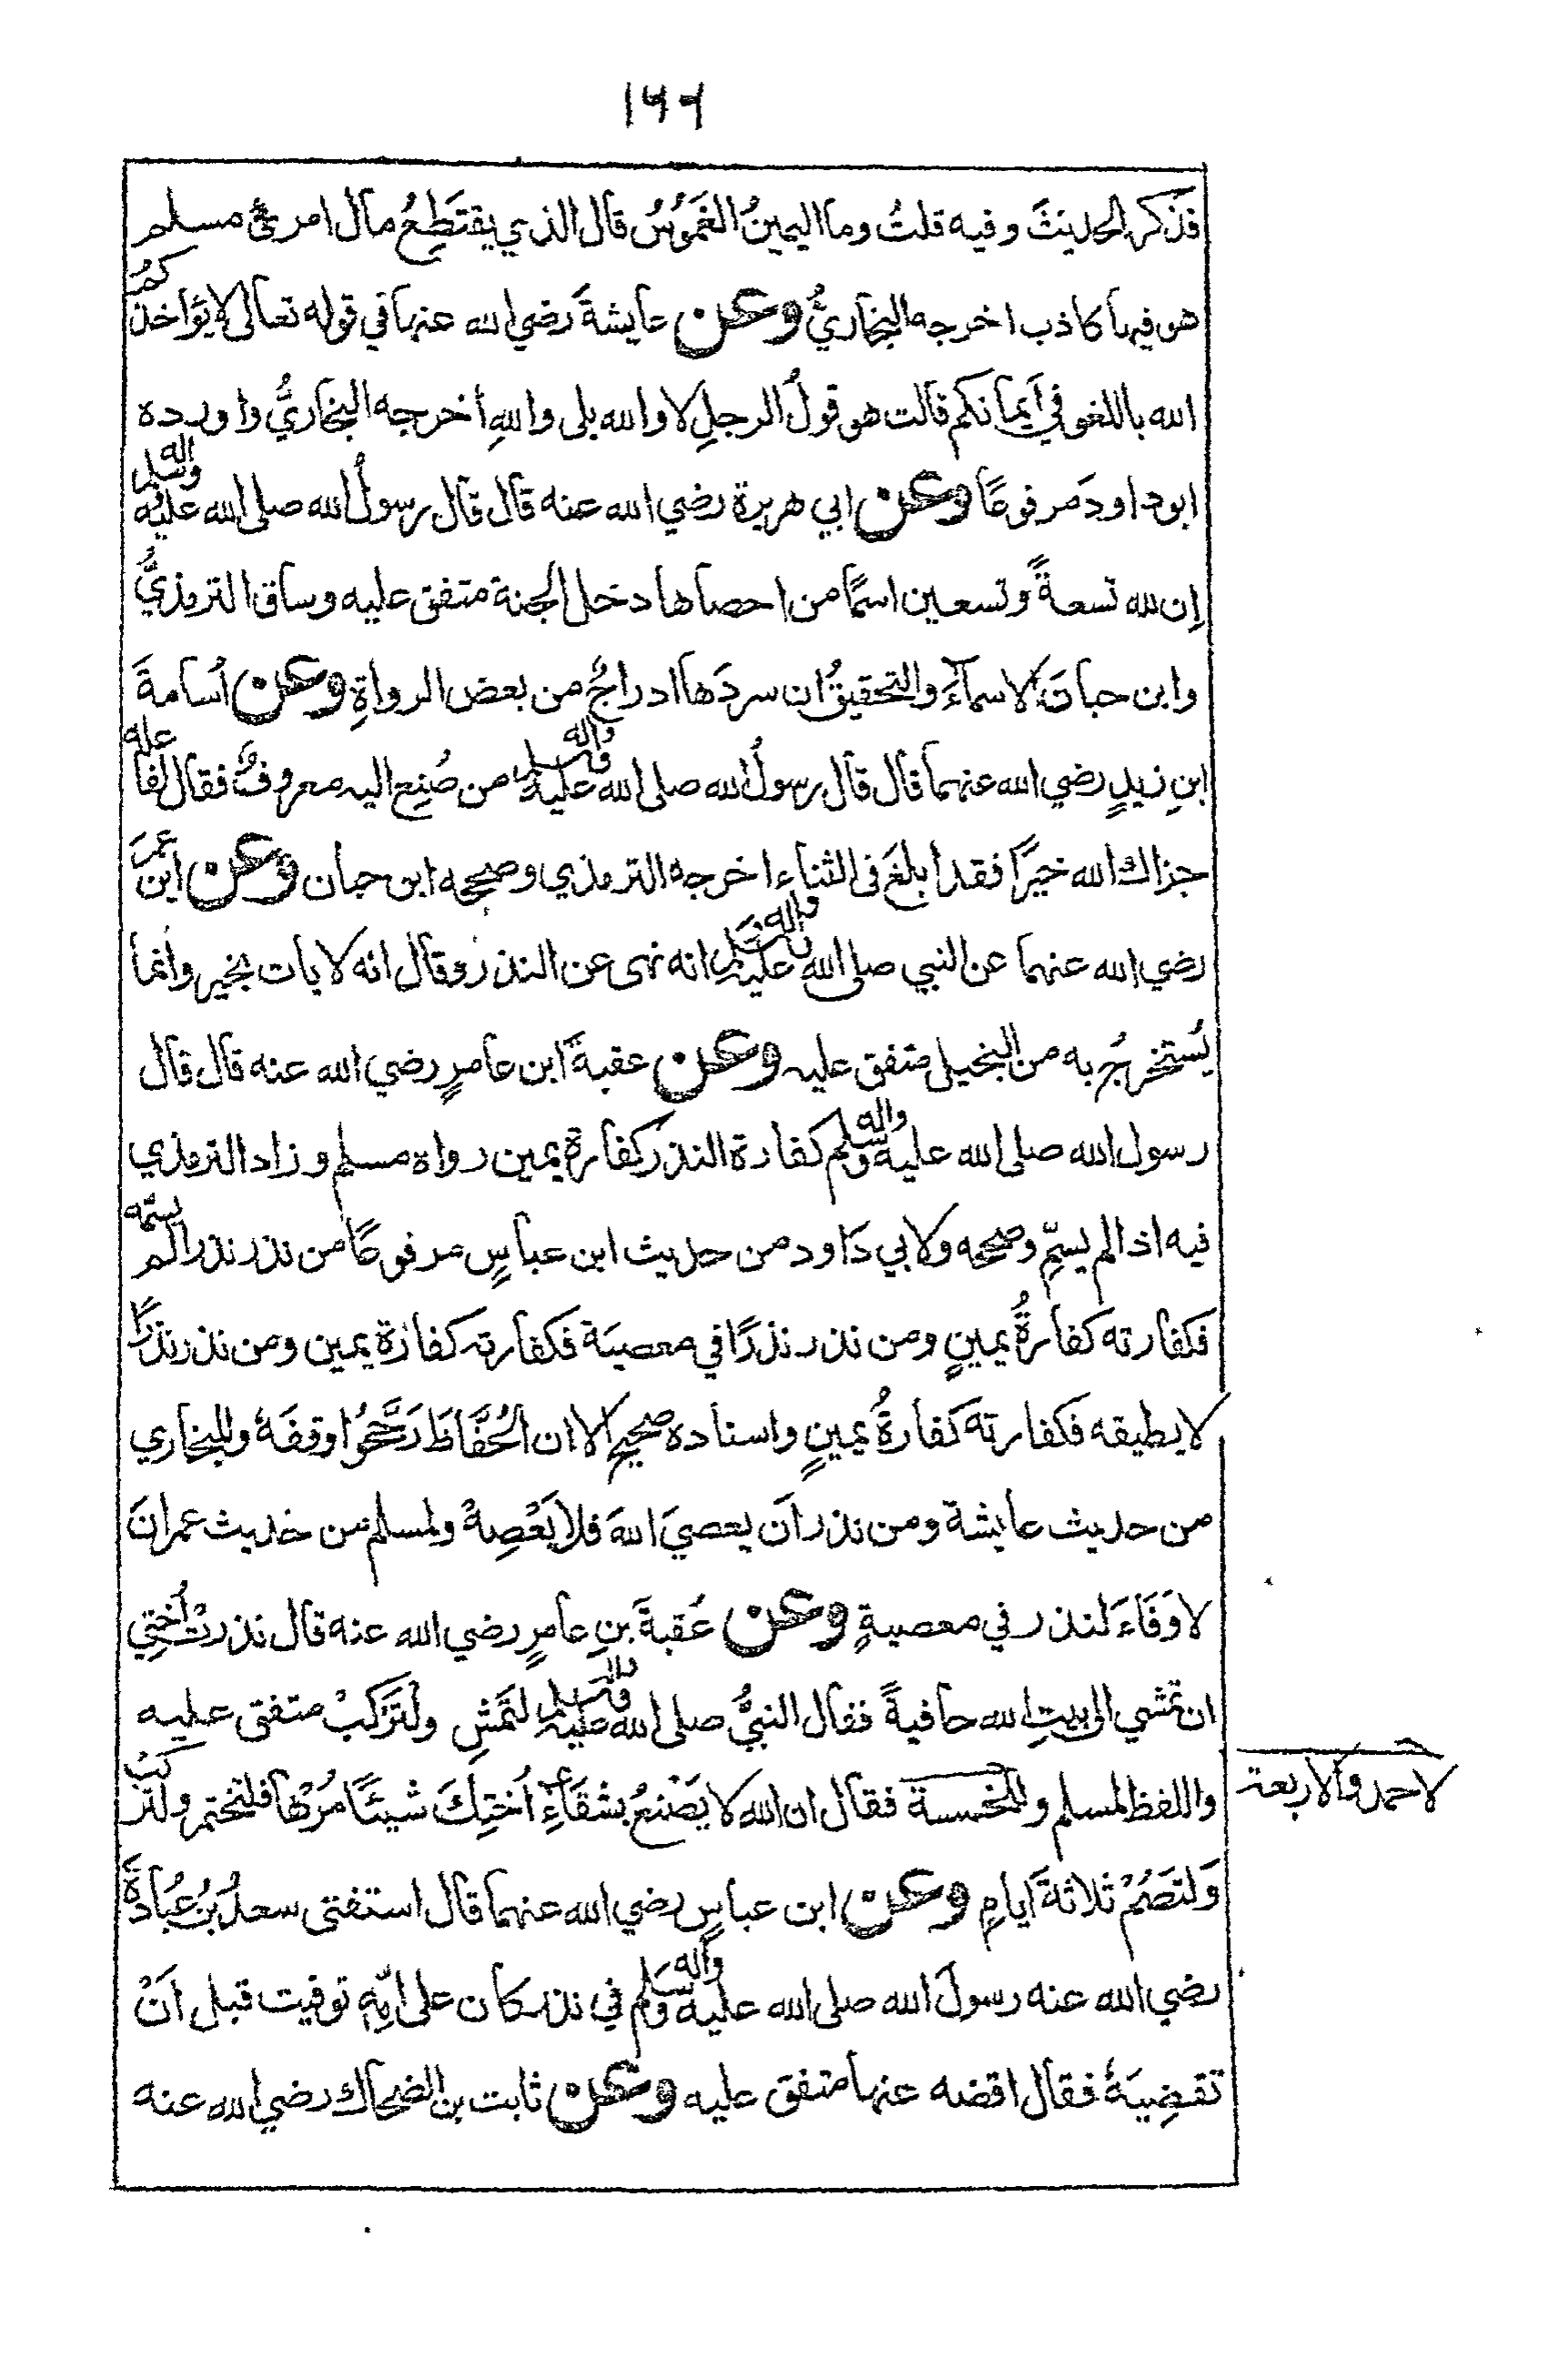 ١٦٦
فذكر الحديثَ وفيه قلتُ وما اليمينُ الغَمُوُسُ قال الذي يقتَطِعُ مال امرئ مسلم
هو فيها كاذب اخرجه البخاريُّ وعن عايشةَ رضي الله عنها في قوله تعالى لا يؤاخذكمُ
الله باللغو في أيمانكم قالت هو قولُ الرجلِ لا والله بلى واللهِ أخرجه البخاريُّ واورده
ابوداودَ مرفوعًا وعن ابي هريرة رضي الله عنه قال قال رسولُ الله صلى الله عليه واله وسلم
إن لله تسعةً وتسعين اسمًا من احصاها دخل الجنة متفق عليه وساق الترمذيُّ
وابن حبانَ الاسماءَ والتحقيقُ ان سردَها ادراجٌ من بعض الرواةِ وعن أسامةَ
ابنِ زيدٍ رضي الله عنهما قال قال رسولُ الله صلى الله عليه واله وسلم من صُنِع اليه معروفٌ فقال لفاعله
جزاك الله خيرًا فقد أبلغَ في الثناء اخرجه الترمذي وصححه ابن حبان وعن ابن عمرَ
رضي الله عنهما عن النبي صلى الله عليه واله وسلم انه نهى عن النذر وقال انه لا يات بخير وانما
يُستخرجُ به من البخيل متفق عليه وعن عقبةَ ابن عامرٍ رضي الله عنه قال قال
رسول الله صلى الله عليه واله وسلم كفارة النذر كفارة يمين رواه مسلم وزاد الترمذي
فيه اذا لم يسمِّ وصححه ولابي داود من حديث ابن عباسٍ مرفوعًا من نذر نذرا لم يسمّه
فكفارته كفارةُ يمينٍ ومن نذر نذرًا في معصية فكفارته كفارة يمين ومن نذر نذرًا
لا يطيقه فكفارته كفارةُ يمينٍ واسناده صحيح الا ان الحُفَّاظَ رَجَّحُوا وقفَهُ وللبخاري
من حديث عايشة ومن نذر أن يعصيَ اللهَ فلا يَعْصِهْ ولمسلم من حديث عمرانَ
لا وَفَاءَ لنذر في معصيةٍ وعن عُقبةَ بنِ عامرٍ رضي الله عنه قال نذرتْ أختِي
ان تمشي الى بيتِ الله حافيةً فقال النبيُّ صلى الله عليه واله وسلم لتمشِ ولتَرْكبْ متفق عليه
واللفظ لمسلم وللخمسة فقال ان الله لا يَصْنعُ بشقَاءِ أختِكَ شيئًا مُرْها فلتختمر ولتركبْ
لاحمد والاربعة
وَلتَصُمْ ثلاثةَ أيامٍ وعن ابن عباسٍ رضي الله عنهما قال استفتى سعدُ بنُ عُبَادةَ
رضي الله عنه رسولَ الله صلى الله عليه واله وسلم في نذر كان على امّه توفيت قبل انْ
تقضِيَهُ فقال اقضه عنها متفق عليه وعن ثابت بن الضحاك رضي الله عنه